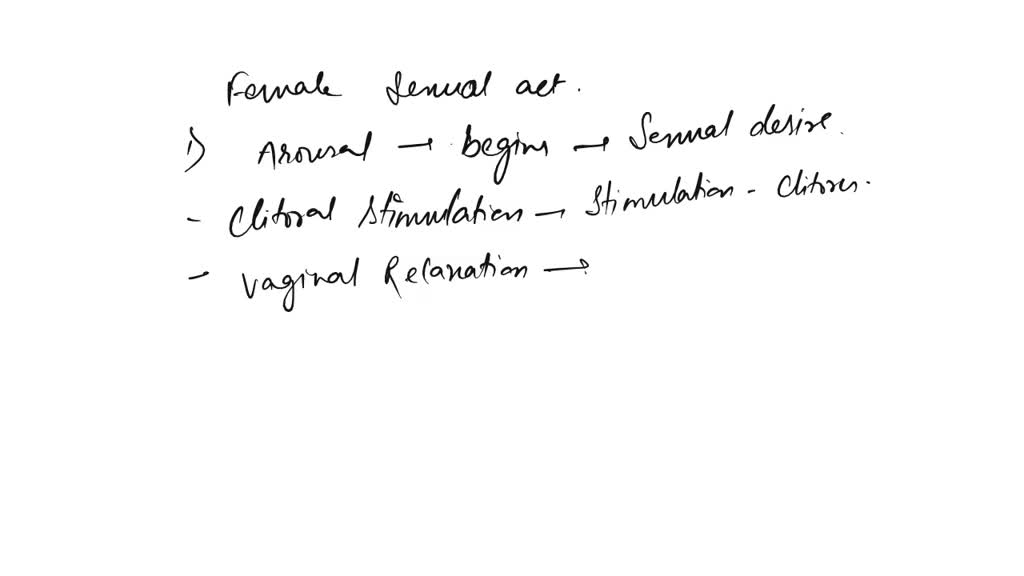 Female Sexual act.
1) Arousal → begins → Sexual desire.
- Clitoral Stimulation → Stimulation - Clitores.
- Vaginal Relaxation →